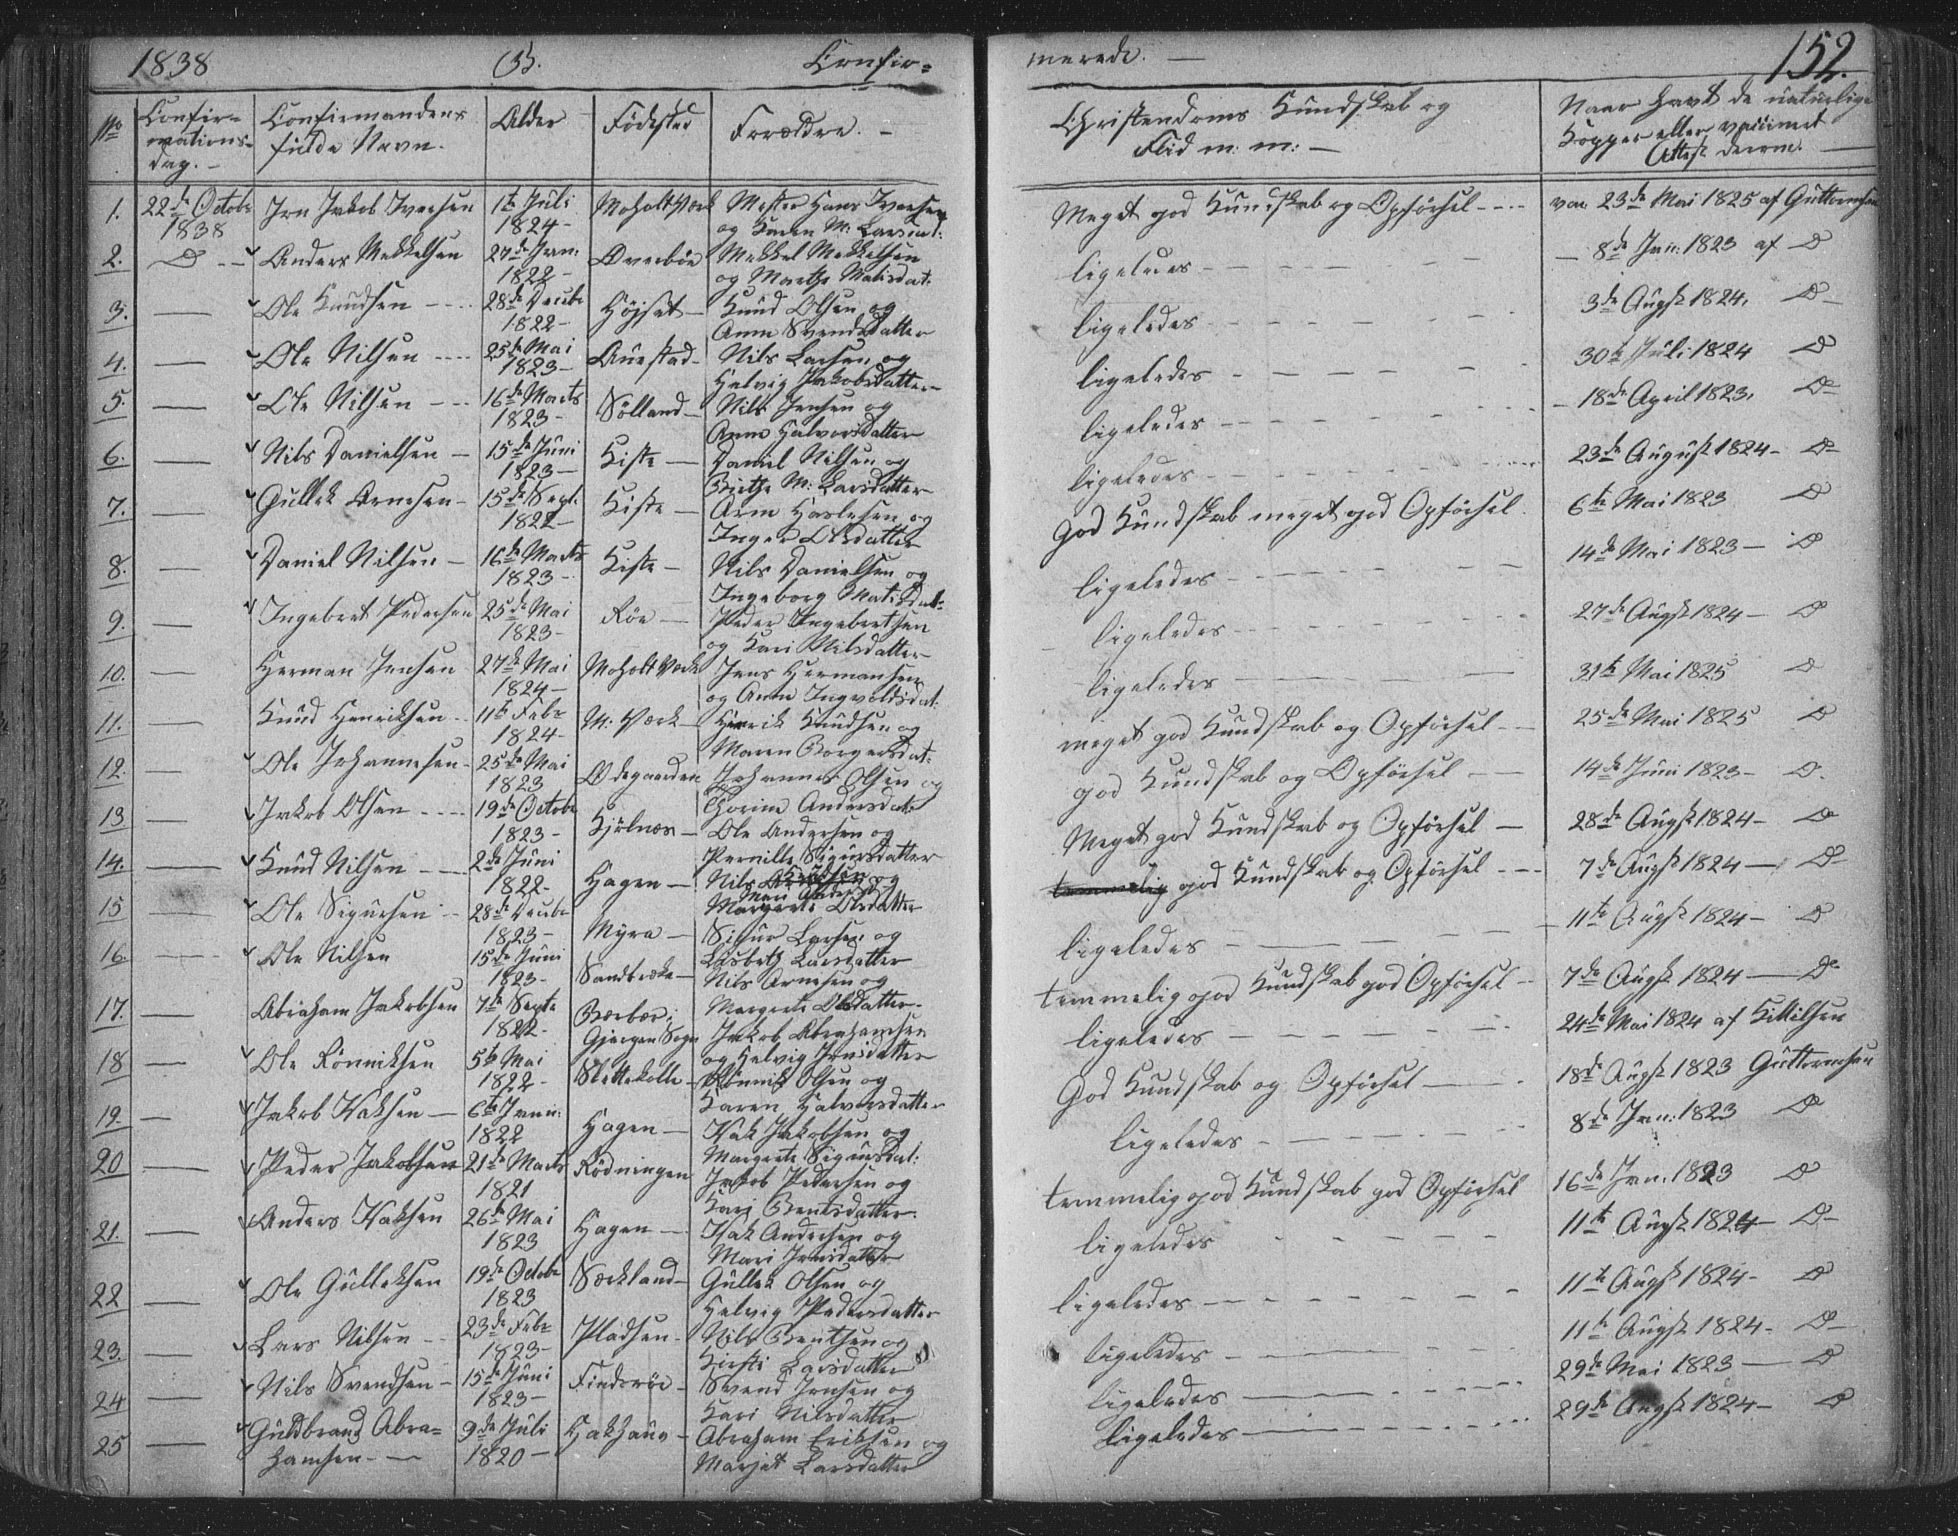 1838 (3). Confir=
merede. — 152.
No Confir=mations=dag. — Confirmandens fulde Navn. Alder Fødested Forældre. — Christendoms Kundskab og Flid m: m: — Naar havt de naturlige Kopper eller vaccineret Attest derom. —
1. 22de Octobr 1838 Jon Jakob Iversen 1te Juli 1824 — Moholt Værk Mester Hans Iversen og Karen M: Larsdat: Meget god Kundskab og Opførsel — vac. 23de Mai 1825 af Guttormsen
2. D — Anders Mekkelsen 27de Jan: 1822 — Øverbøe Mekkel Mekkelsen og Marthe Matisdat: ligeledes — 8de Jan: 1823 af D
3. — Ole Knudsen — 28de Decbr 1822 — Højset — Knud Olsen og Anne Svendsdatter ligeledes — 3de Augst 1824. D
4. — Ole Nilsen — 25de Mai 1823 — Auestad — Nils Larsen og Helvig Jakobsdatter — ligeledes — 30te Juli 1824 D
5 — Ole Nilsen — 16de Marts 1823 — Sølland — Nils Jensen og Anne Halvorsdatter ligeledes — 18de April 1823. D
6. — Nils Danielsen — 15de Juni 1823 — Kiste — Daniel Nilsen og Birthe M: Larsdatter ligeledes — 23de August 1824 — D
7. — Gullek Arnesen — 15de Sept. 1822 — Kiste — Arne Haslesen og Inger Olsdatter God Kundskab meget god Opførsel. 6te Mai 1823 D
8. — Daniel Nilsen — 16de Marts 1823 — Kiste — Nils Danielsen og Ingeborg Matisdat: ligeledes — 14de Mai 1823 — D
9. — Ingebret Pedersen 25de Mai 1823 — Røe — Peder Ingebretsen og Kari Nilsdatter ligeledes — 27de Augst 1824 — D
10. — Herman Jensen 27de Mai 1824 — Moholt Værk Jens Hermansen og Anne Ingvoldsdat: ligeledes — 31te Mai 1825 D
11. — Knud Henriksen — 11te Febr 1824 — M: Værk — Henrik Knudsen og Maren Borgersdat: meget god Kundskab og Opførsel — 25de Mai 1825 D
12. — Ole Johannesen — 25de Mai 1823 Ødegaarden Johannes Olsen og Thorine Andersdat: god Kundskab og Opførsel — 14de Juni 1823 — D.
13 — Jakob Olsen — 19de Octobr 1823 — Kjølnæs — Ole Andersen og Pernille Sigursdatter Meget god Kundskab og Opførsel — 28de Augst 1824 — D
14. — Knud Nilsen — 2de Juni 1822 — Hagen — Nils Knudsen og Mari Andersd: Margrete Olsdatter temmelig god Kundskab og Opførsel — 7de Augst 1824 — D
15 Ole Sigursen — 28de Decbr 1823 — Myra — Sigur Larsen og Lisbeth Larsdatter ligeledes — 11te Augst 1824 — D
16. — Ole Nilsen 15de Juni 1823 — Sandbække — Nils Arnesen og Margrete Olsdatter — temmelig god Kundskab god Opførsel — 7de Augst 1824 — D
17. — Abraham Jakobsen 7de Septr 1822 — Borbær: Gjerpen Sogn Jakob Abrahamsen og Helvig Jonsdatter ligeledes — 24de Mai 1824 af Kittilsen
18 — Ole Rønniksen 5te Mai 1822 — Slettekolle — Rønnik Olsen og Karen Halvorsdatter God Kundskab og Opførsel — 18de Augst 1823 Guttormsen
19. — Jakob Isaksen — 6te Janu: 1822 Hagen — Isak Jakobsen og Margrete Sigursdat: ligeledes — 8de Jan: 1823 D
20 — Peder Jakobsen 21de Marts 1821 Rødningen Jakob Pedersen og Kari Bentsdatter. temmelig god Kundskab god Opførsel 16de Jan: 1823 D
21. — Anders Isaksen 26de Mai 1823 Hagen — Isak Andersen og Mari Jonsdatter ligeledes 11te Augst 1824 — D
22 — Ole Gulleksen 19de Octobr 1823 Sørkland — Gullek Olsen og Helvig Pedersdatter ligeledes — 11te Augst 1824 — D
23. — Lars Nilsen — 23de Febr 1823 — Pladsen — Nils Bentsen og Kirsti Larsdatter ligeledes — 11te Augst 1824 — D
24 — Nils Svendsen — 15de Juni 1823 — Finderøe — Svend Jensen og Kari Nilsdatter ligeledes — 29de Mai 1823 — D
25 — Guldbrand Abra=hamsen — 9de Juli 1820 — Hakhaug — Abraham Eriksen og Marjet Larsdatter ligeledes — 29de Augst 1824 — D